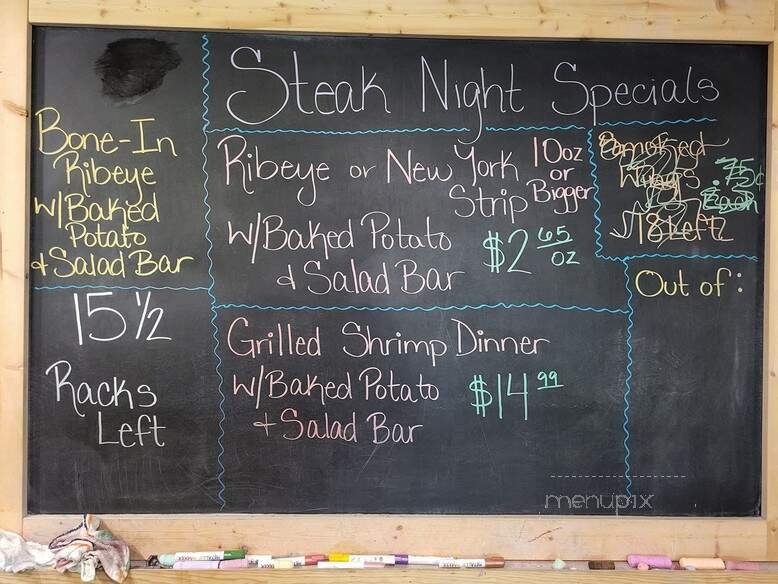 Steak Night Specials
Bone-In
Ribeye
w/Baked
Potato
& Salad Bar
15 1/2
Racks
Left
Ribeye or New York
Strip
10oz
or
Bigger
w/Baked Potato
& Salad Bar
$2 65
oz
Grilled Shrimp Dinner
w/Baked Potato
& Salad Bar
$14 99
Wings
75¢
Each
18 Left
Out of:
menupix